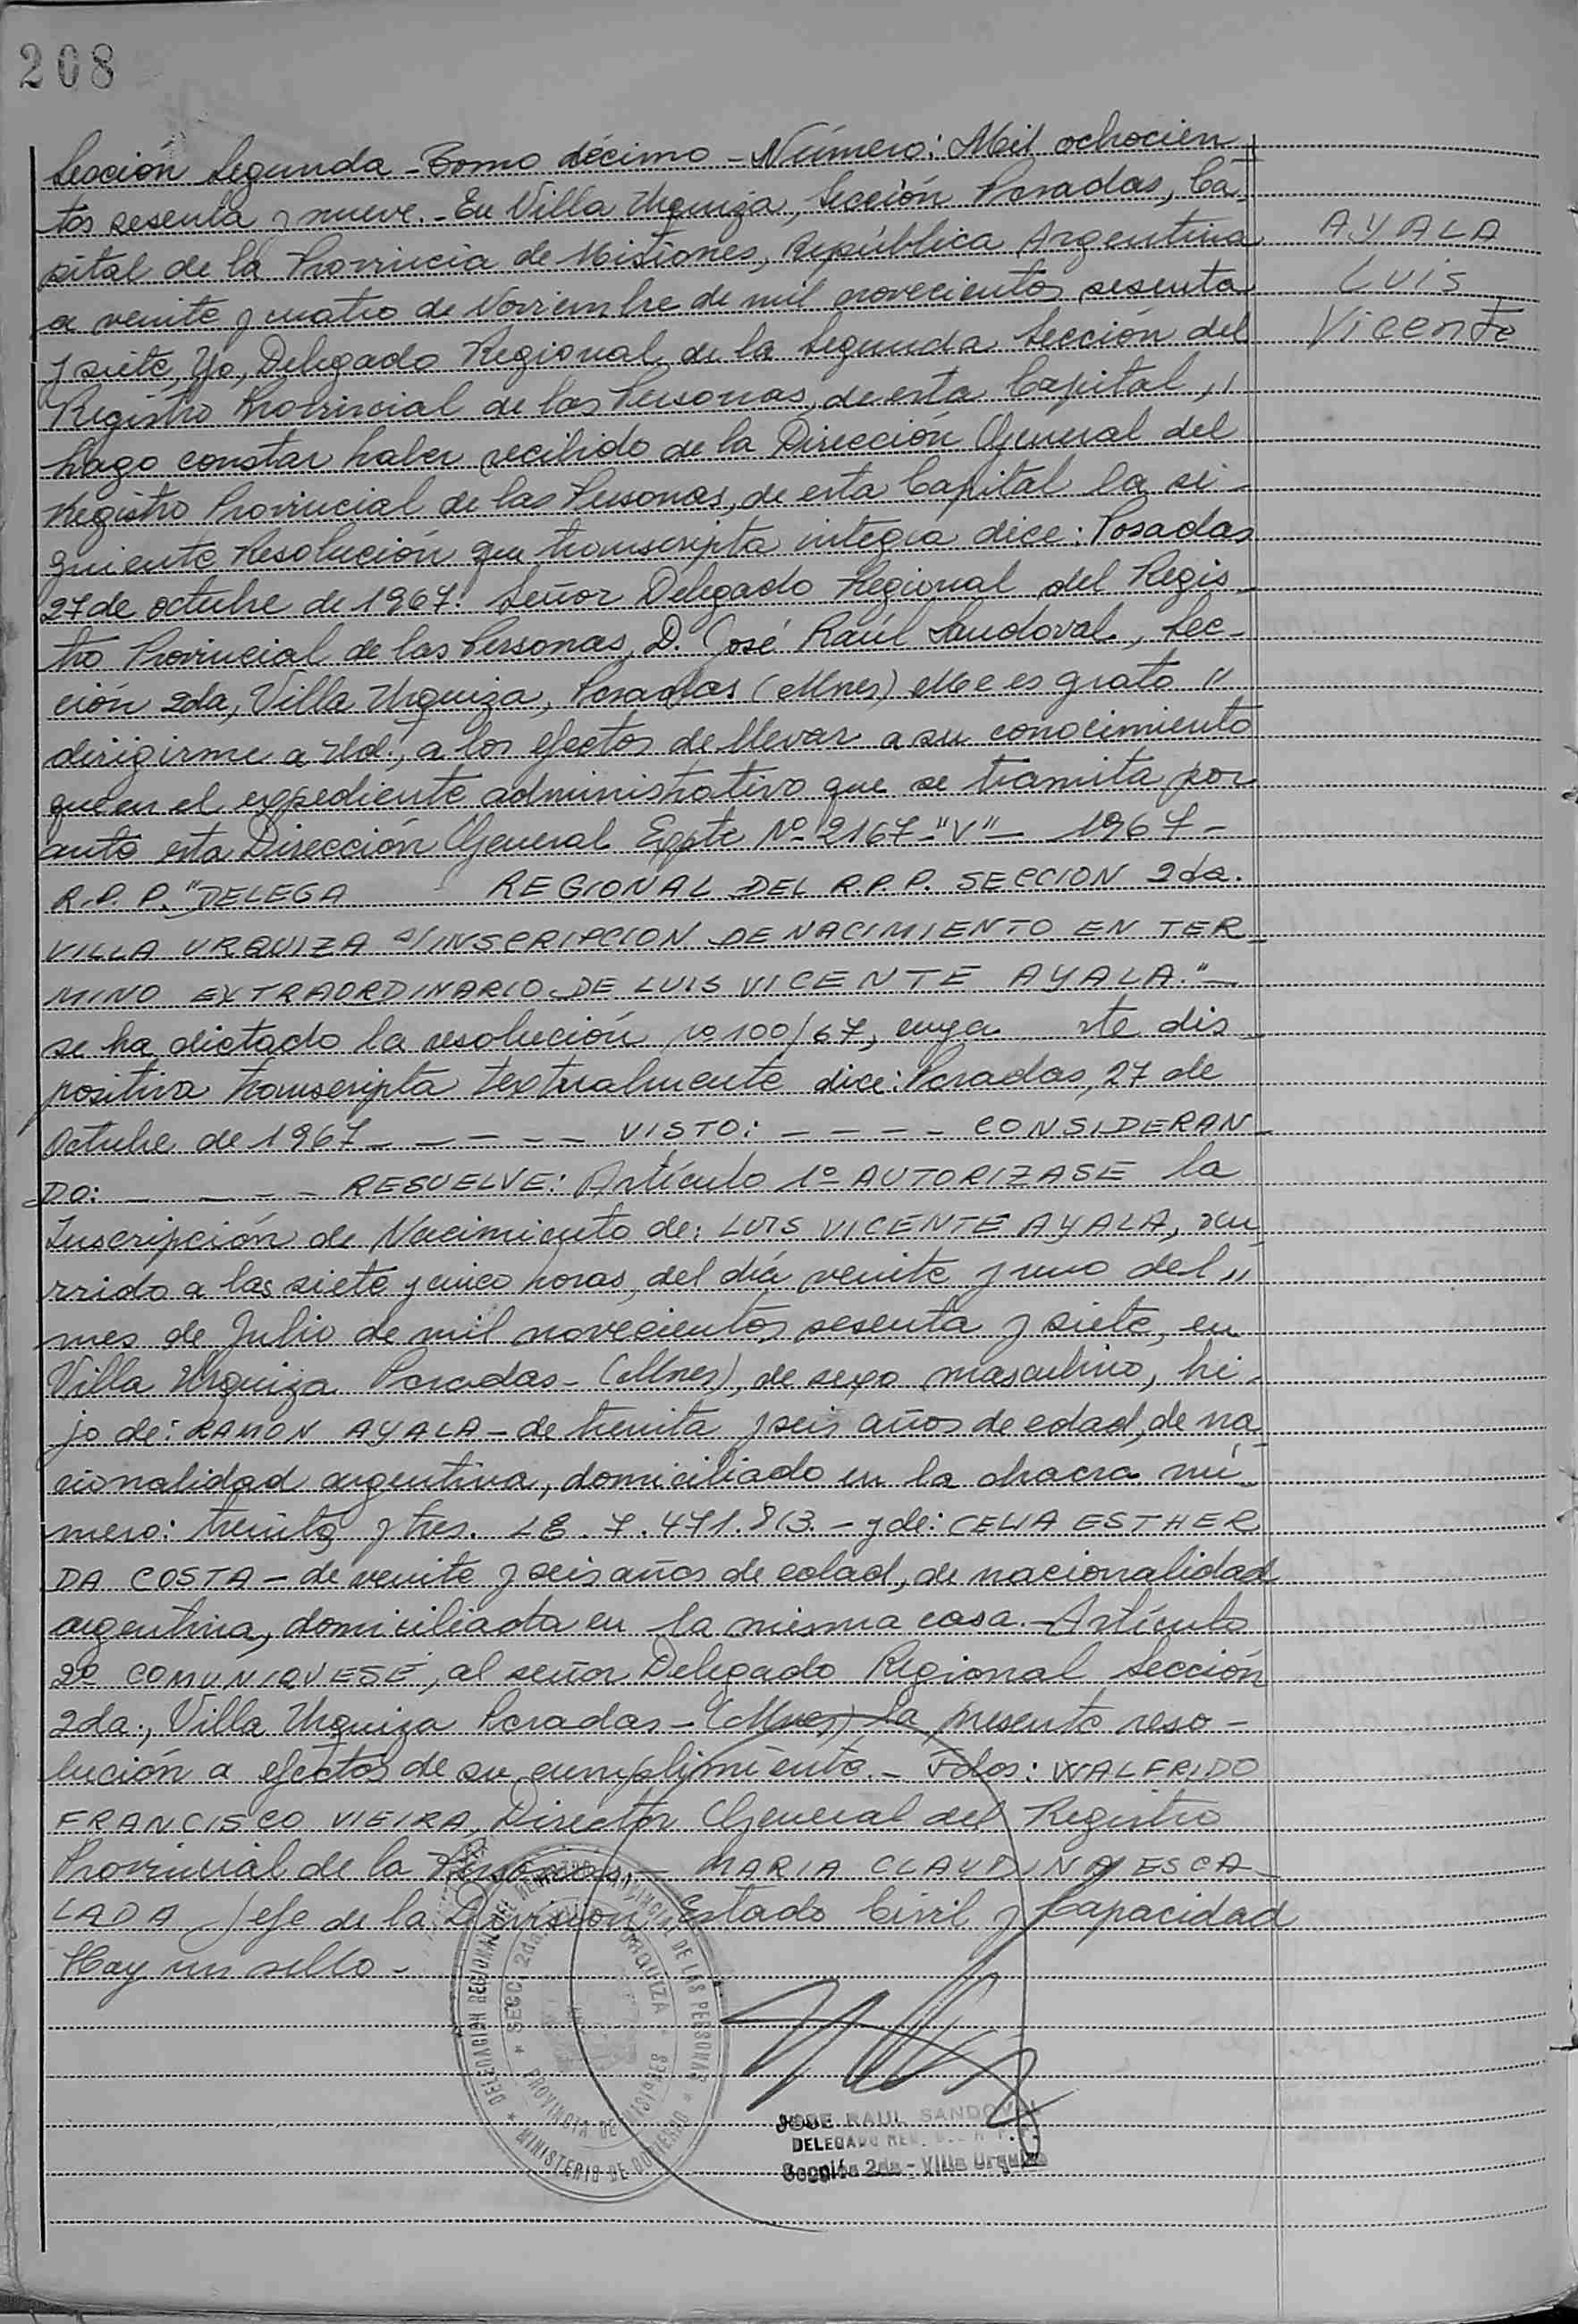 208
Sección Segunda - Tomo décimo - Número: Mil ochocien
tos sesenta y nueve. - En Villa Urquiza, Sección Posadas, Ca-
pital de la Provincia de Misiones, República Argentina
a veinte y cuatro de Noviembre de mil novecientos sesenta
y siete, Yo, Delegado Regional de la Segunda Sección del
Registro Provincial de las Personas, de esta Capital, "
hago constar haber recibido de la Dirección General del
Registro Provincial de las Personas, de esta Capital la si-
guiente Resolución que transcripta integra dice: Posadas
27 de octubre de 1967. Señor Delegado Regional del Regis-
tro Provincial de las Personas, D. José Raúl Sandoval., Sec-
ción 2da, Villa Urquiza, Posadas (Mnes) Me es grato "
dirigirme a Ud., a los efectos de llevar a su conocimiento
que en el expediente administrativo que se tramita por
ante esta Dirección General Expte Nº 2167-"V"- 1967-
R.P.P. "DELEGA REGIONAL DEL R.P.P. SECCION 2da.
VILLA URQUIZA s/INSCRIPCION DE NACIMIENTO EN TER-
MINO EXTRAORDINARIO DE LUIS VICENTE AYALA."-
se ha dictado la resolución nº 100/67, cuya te dis-
positiva transcripta textualmente dice: Posadas, 27 de
Octubre de 1967 - - - - - VISTO: - - - - CONSIDERAN-
DO: - - - - RESUELVE: Artículo 1º AUTORIZASE la
Inscripción de Nacimiento de: LUIS VICENTE AYALA, ocu
rrido a las siete y cinco horas, del día veinte y uno del "
mes de Julio de mil novecientos sesenta y siete, en
Villa Urquiza Posadas - (Mnes), de sexo masculino, hi-
jo de: RAMON AYALA - de treinta y seis años de edad, de na-
cionalidad argentina, domiciliado en la chacra nú-
mero: treinta y tres. LE. 7.471.813. - y de: CELIA ESTHER
DA COSTA - de veinte y seis años de edad, de nacionalidad
argentina, domiciliada en la misma casa. - Artículo
2º COMUNIQUESE, al señor Delegado Regional Sección
2da., Villa Urquiza Posadas - (Mnes) la presente reso-
lución a efectos de su cumplimiento. - Fdos: WALFRIDO
FRANCISCO VIEIRA, Director General del Registro
Provincial de la Personas. - MARIA CLAUDINA ESCA-
LADA Jefe de la División Estado Civil y Capacidad
Hay un sello -
AYALA
Luis
Vicente
DELEGACION REGIONAL DEL REGISTRO PROVINCIAL DE LAS PERSONAS * MINISTERIO DE GOBIERNO *
* SECC 2da. URQUIZA * PROVINCIA DE MISIONES
JOSE RAUL SANDOVAL
DELEGADO REG. R.P.P.
Sección 2da - Villa Urquiza